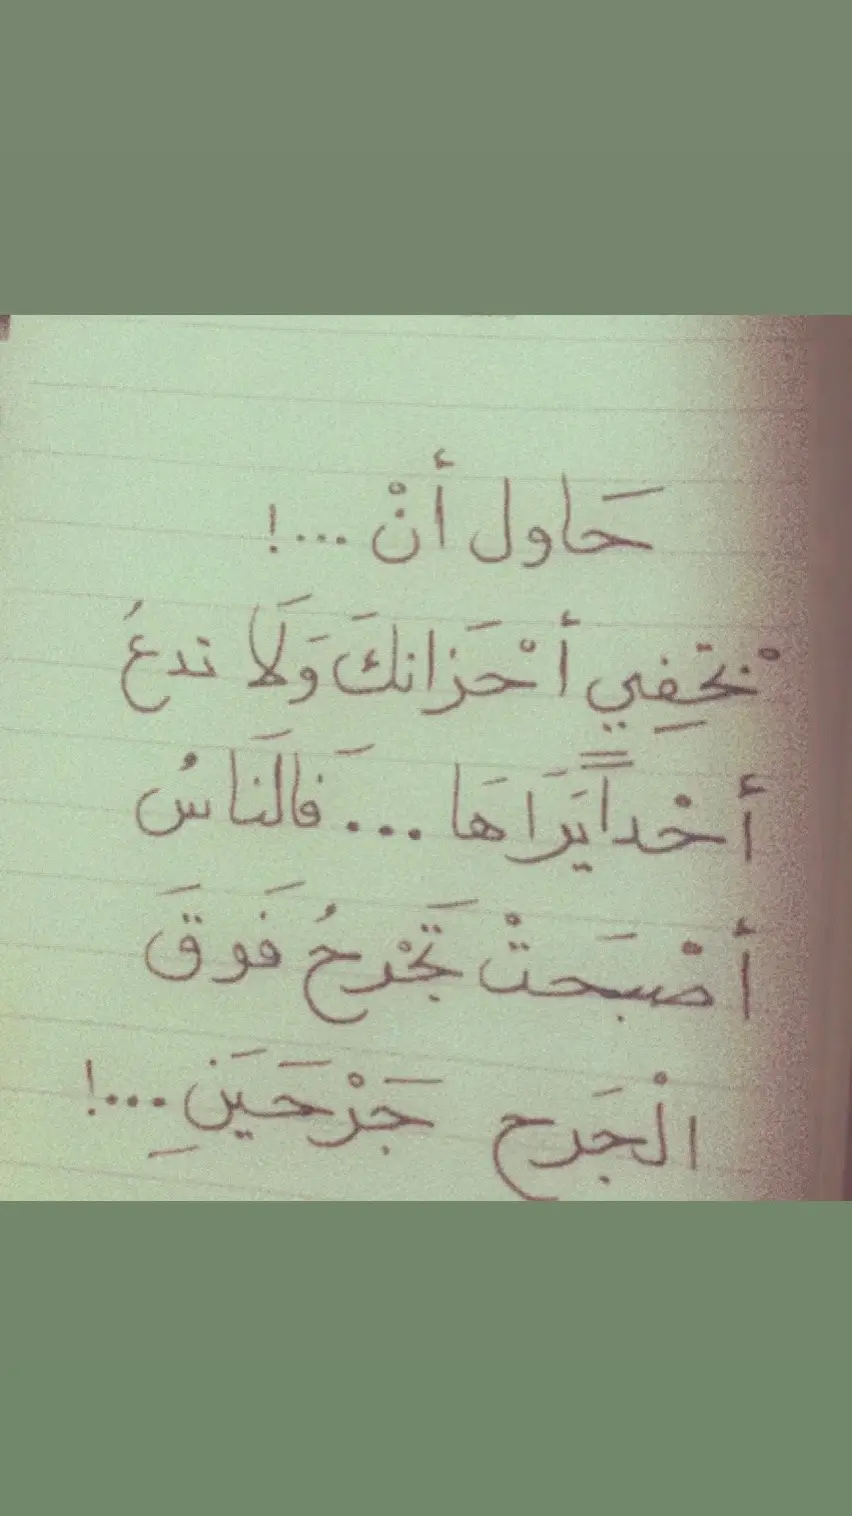 حَاول أنْ ...!
تخْفِي أحْزَانكَ وَلَا تدعُ
أحْداً يَرَاهَا ... فَالَناسُ
أصْبَحتْ تَجْرحُ فَوقَ
الْجَرح جَرْحَينِ ...!